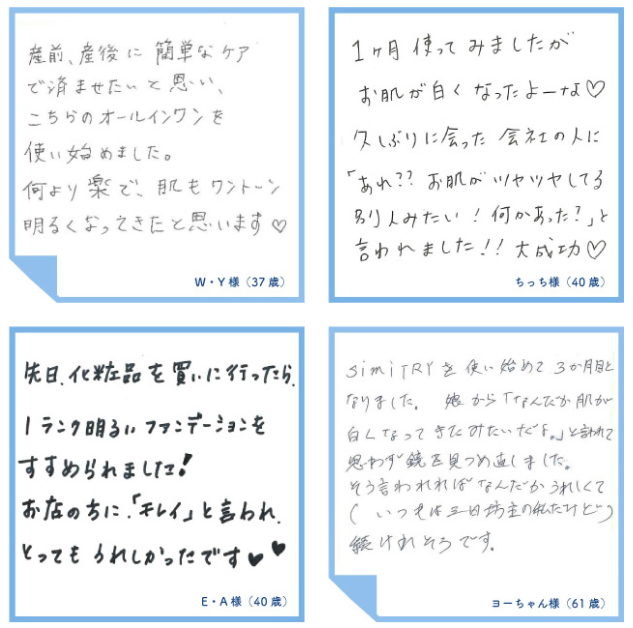 産前、産後に 簡単なケア
で済ませたいと思い、
こちらのオールインワンを
使い始めました。
何より楽で、肌もワントーン
明るくなってきたと思います♡
W・Y様（37歳）
1ヶ月 使ってみましたが
お肌が白くなったよーな♡
久しぶりに会った会社の人に
「あれ?? お肌がツヤツヤしてる
別人みたい！何かあった？」と
言われました!! 大成功♡
ちっち様（40歳）
先日、化粧品を買いに行ったら、
1ランク明るいファンデーションを
すすめられました！
お店の方に、「キレイ」と言われ、
とってもうれしかったです♥♥
E・A様（40歳）
simiTRYを使い始めて3か月目と
なりました。 娘から「なんだか肌が
白くなってきたみたいだよ。」と言われて
思わず鏡を見つめ直しました。
そう言われればなんだかうれしくて
（いつもは三日坊主の私だけど）
続けれそうです。
ヨーちゃん様（61歳）